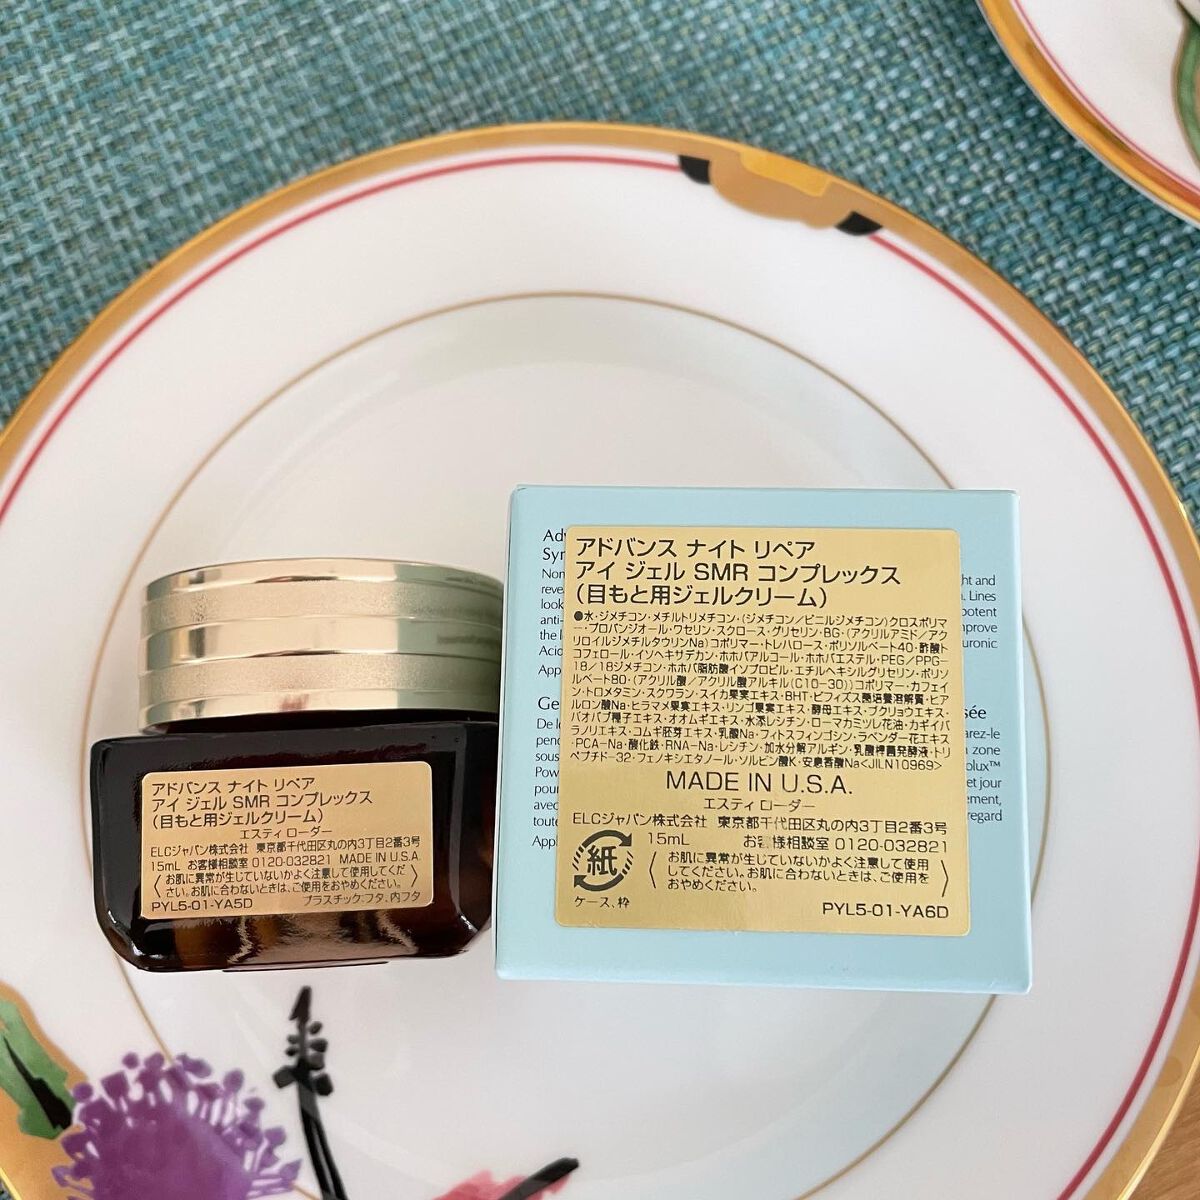 アドバンス ナイト リペア
アイ ジェル SMR コンプレックス
(目もと用ジェルクリーム)
エスティ ローダー
ELCジャパン株式会社 東京都千代田区丸の内3丁目2番3号
15mL お客様相談室 0120-032821 MADE IN U.S.A.
お肌に異常が生じていないかよく注意して使用してくだ
さい。お肌に合わないときは、ご使用をおやめください。
PYL5-01-YA5D プラスチック:フタ、内フタ
アドバンス ナイト リペア
アイ ジェル SMR コンプレックス
(目もと用ジェルクリーム)
●水・ジメチコン・メチルトリメチコン・(ジメチコン/ビニルジメチコン)クロスポリマ
ー・プロパンジオール・ワセリン・スクロース・グリセリン・BG・(アクリルアミド/アク
リロイルジメチルタウリンNa)コポリマー・トレハロース・ポリソルベート40・酢酸ト
コフェロール・イソヘキサデカン・ホホバアルコール・ホホバエステル・PEG/PPG-
18/18ジメチコン・ホホバ脂肪酸イソプロピル・エチルヘキシルグリセリン・ポリソ
ルベート80・(アクリル酸/アクリル酸アルキル(C10-30))コポリマー・カフェイ
ン・トロメタミン・スクワラン・スイカ果実エキス・BHT・ビフィズス菌培養溶解質・ヒア
ルロン酸Na・ヒラマメ果実エキス・リンゴ果実エキス・酵母エキス・ブクリョウエキス・
バオバブ種子エキス・オオムギエキス・水添レシチン・ローマカミツレ花油・カギイバ
ラノリエキス・コムギ胚芽エキス・乳酸Na・フィトスフィンゴシン・ラベンダー花エキス
・PCA-Na・酸化鉄・RNA-Na・レシチン・加水分解アルギン・乳酸桿菌発酵液・トリ
ペプチド-32・フェノキシエタノール・ソルビン酸K・安息香酸Na<JILN10969>
MADE IN U.S.A.
エスティ ローダー
ELCジャパン株式会社 東京都千代田区丸の内3丁目2番3号
15mL お客様相談室 0120-032821
紙
お肌に異常が生じていないかよく注意して使用
してください。お肌に合わないときは、ご使用を
おやめください。
ケース、枠
PYL5-01-YA6D